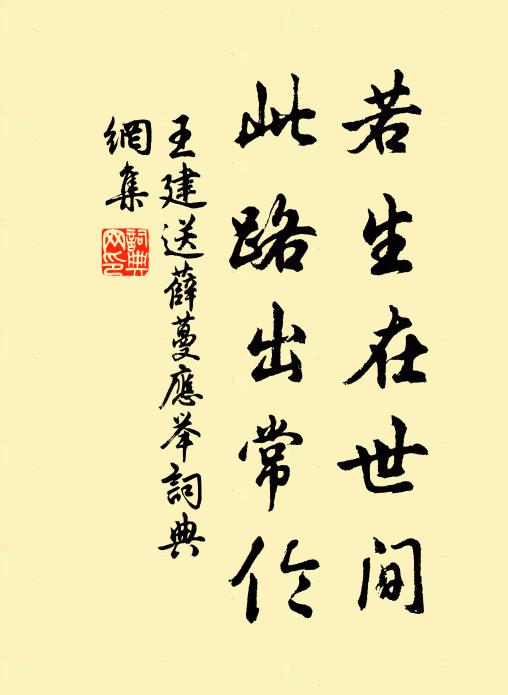 若生在世间
此路出常伦
王建送薛蔓應举詞典
網集
詞典网印